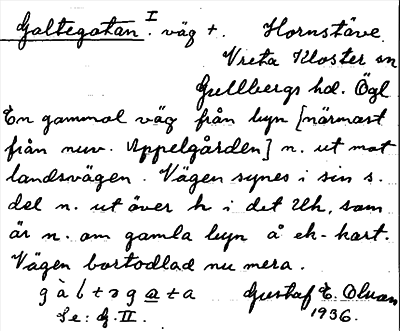 Galtegatan. I väg t. Hornstäve
Vreta Kloster sn
Gullbergs hd. Ögl
En gammal väg från byn [närmast
från nuv. Appelgården] n. ut mot
landsvägen. Vägen synes i sin s.
del n. ut över h i det Uh, som
är n. om gamla byn å ek-kart.
Vägen bortodlad nu mera.
gàltəgata Gustaf E. Olsson
Se: G. II. 1936.